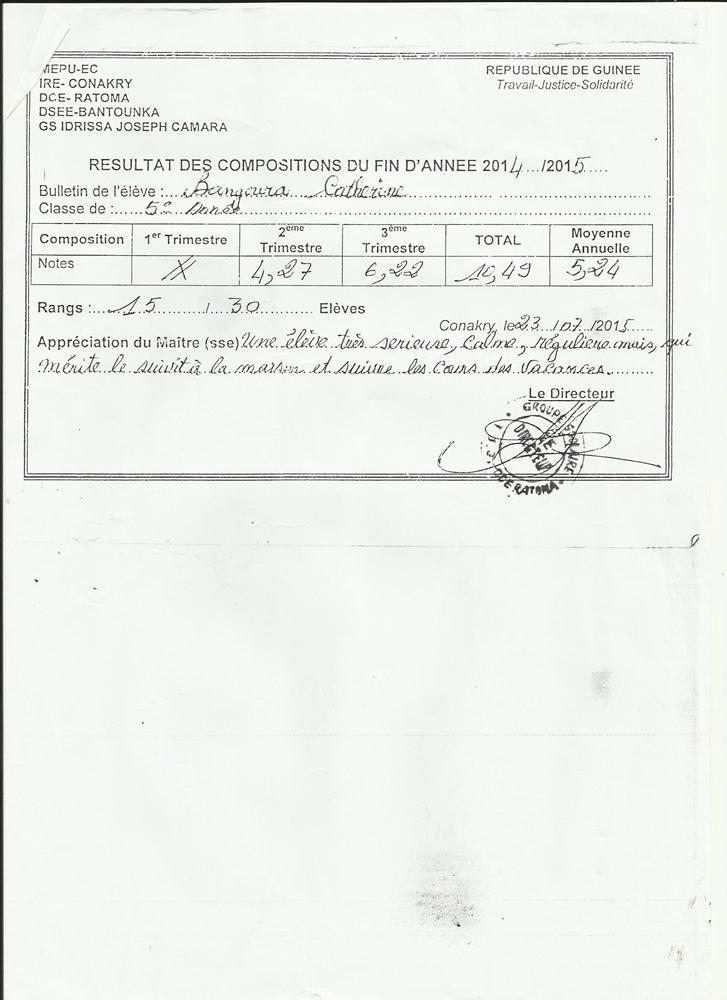 MEPU-EC
IRE- CONAKRY
DCE- RATOMA
DSEE-BANTOUNKA
GS IDRISSA JOSEPH CAMARA
REPUBLIQUE DE GUINEE
Travail-Justice-Solidarité
RESULTAT DES COMPOSITIONS DU FIN D'ANNEE 2014.../2015.....
Bulletin de l'élève :... Bangoura Catherine
Classe de :..... 5e Année
Composition 1er Trimestre 2ème Trimestre 3ème Trimestre TOTAL Moyenne Annuelle
Notes X 4,27 6,22 10,49 5,24
Rangs :... 15 ..../.. 30 ........ Elèves
Conakry, le 23 .../07./2015.....
Appréciation du Maître (sse) Une élève très serieuse, Calme, régulière mais, qui
mérite le suivit à la maison et suivre les Cours des Vacances.
Le Directeur
GROUPE SCOLAIRE
LE DIRECTEUR
DCE RATOMA